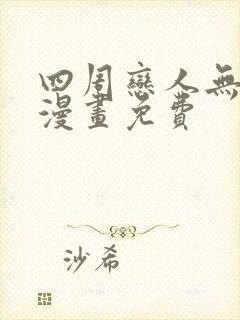 四周戀人無
漫畫免費
沙希